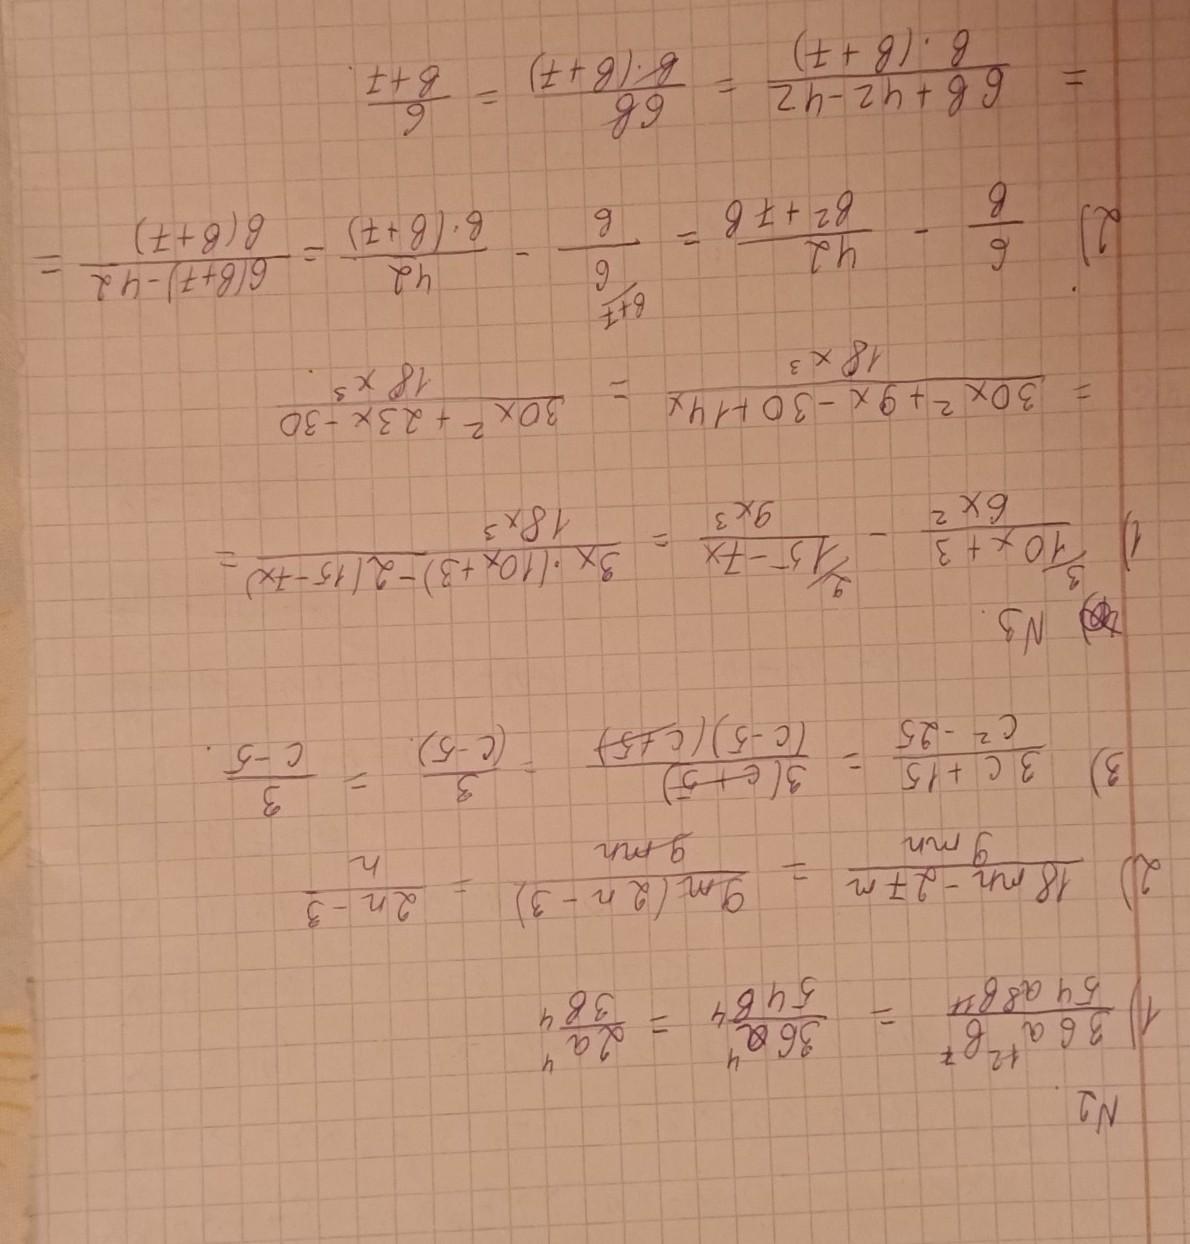 N2.
1) 36a¹²b⁷ / 54a⁸b¹¹ = 36a⁴ / 54b⁴ = 2a⁴ / 3b⁴
2) (18mn - 27m) / 9mn = 9m(2n - 3) / 9mn = (2n - 3) / n
3) (3c + 15) / (c² - 25) = 3(c + 5) / (c - 5)(c + 5) = 3 / (c - 5) = 3 / c - 5.
N3.
1) ³/ (10x + 3) / 6x² - ²/ (15 - 7x) / 9x³ = (3x·(10x + 3) - 2(15 - 7x)) / 18x³ =
= (30x² + 9x - 30 + 14x) / 18x³ = (30x² + 23x - 30) / 18x³.
2) 6 / в - 42 / (в² + 7в) = ᵇ⁺⁷/ 6 / в - 42 / в·(в + 7) = (6(в + 7) - 42) / в(в + 7) =
= (6в + 42 - 42) / в·(в + 7) = 6в / в·(в + 7) = 6 / в + 7.